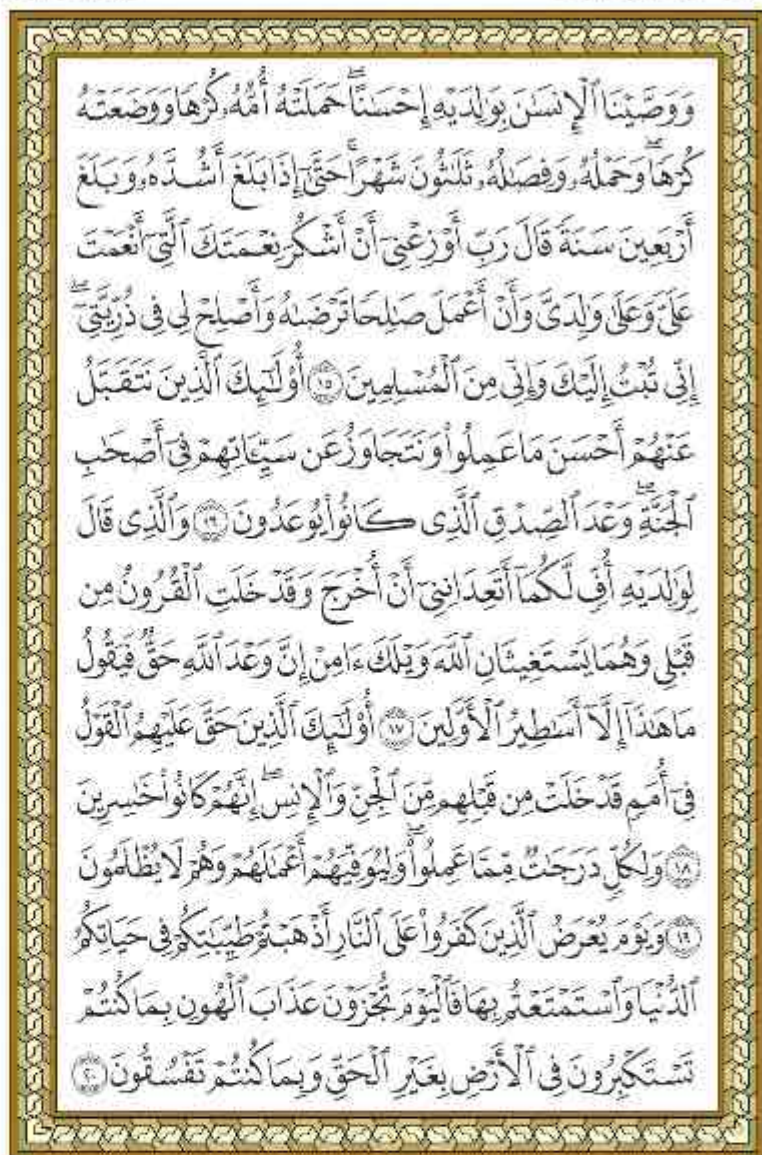 وَوَصَّيْنَا ٱلْإِنسَـٰنَ بِوَٰلِدَيْهِ إِحْسَـٰنًا ۖ حَمَلَتْهُ أُمُّهُۥ كُرْهًا وَوَضَعَتْهُ
كُرْهًا ۖ وَحَمْلُهُۥ وَفِصَـٰلُهُۥ ثَلَـٰثُونَ شَهْرًا ۚ حَتَّىٰٓ إِذَا بَلَغَ أَشُدَّهُۥ وَبَلَغَ
أَرْبَعِينَ سَنَةً قَالَ رَبِّ أَوْزِعْنِىٓ أَنْ أَشْكُرَ نِعْمَتَكَ ٱلَّتِىٓ أَنْعَمْتَ
عَلَىَّ وَعَلَىٰ وَٰلِدَىَّ وَأَنْ أَعْمَلَ صَـٰلِحًا تَرْضَىٰهُ وَأَصْلِحْ لِى فِى ذُرِّيَّتِىٓ ۖ
إِنِّى تُبْتُ إِلَيْكَ وَإِنِّى مِنَ ٱلْمُسْلِمِينَ ١٥ أُو۟لَـٰٓئِكَ ٱلَّذِينَ نَتَقَبَّلُ
عَنْهُمْ أَحْسَنَ مَا عَمِلُوا۟ وَنَتَجَاوَزُ عَن سَيِّـَٔاتِهِمْ فِىٓ أَصْحَـٰبِ
ٱلْجَنَّةِ ۖ وَعْدَ ٱلصِّدْقِ ٱلَّذِى كَانُوا۟ يُوعَدُونَ ١٦ وَٱلَّذِى قَالَ
لِوَٰلِدَيْهِ أُفٍّ لَّكُمَآ أَتَعِدَانِنِىٓ أَنْ أُخْرَجَ وَقَدْ خَلَتِ ٱلْقُرُونُ مِن
قَبْلِى وَهُمَا يَسْتَغِيثَانِ ٱللَّهَ وَيْلَكَ ءَامِنْ إِنَّ وَعْدَ ٱللَّهِ حَقٌّ فَيَقُولُ
مَا هَـٰذَآ إِلَّآ أَسَـٰطِيرُ ٱلْأَوَّلِينَ ١٧ أُو۟لَـٰٓئِكَ ٱلَّذِينَ حَقَّ عَلَيْهِمُ ٱلْقَوْلُ
فِىٓ أُمَمٍ قَدْ خَلَتْ مِن قَبْلِهِم مِّنَ ٱلْجِنِّ وَٱلْإِنسِ ۖ إِنَّهُمْ كَانُوا۟ خَـٰسِرِينَ
١٨ وَلِكُلٍّ دَرَجَـٰتٌ مِّمَّا عَمِلُوا۟ ۖ وَلِيُوَفِّيَهُمْ أَعْمَـٰلَهُمْ وَهُمْ لَا يُظْلَمُونَ
١٩ وَيَوْمَ يُعْرَضُ ٱلَّذِينَ كَفَرُوا۟ عَلَى ٱلنَّارِ أَذْهَبْتُمْ طَيِّبَـٰتِكُمْ فِى حَيَاتِكُمُ
ٱلدُّنْيَا وَٱسْتَمْتَعْتُم بِهَا فَٱلْيَوْمَ تُجْزَوْنَ عَذَابَ ٱلْهُونِ بِمَا كُنتُمْ
تَسْتَكْبِرُونَ فِى ٱلْأَرْضِ بِغَيْرِ ٱلْحَقِّ وَبِمَا كُنتُمْ تَفْسُقُونَ ٢٠